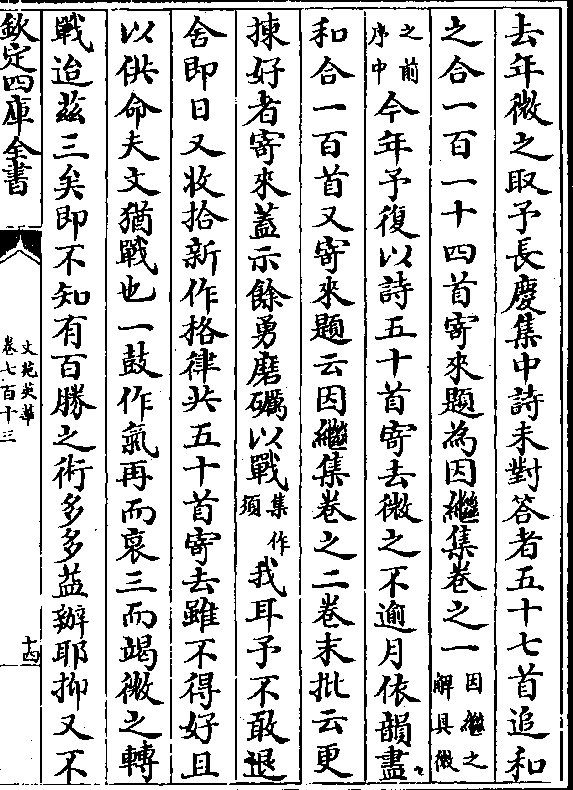 去年微之取予長慶集中詩未對答者五十七首追和
之合一百一十四首寄來題為因繼集卷之一因繼之解具微
之前序中今年予復以詩五十首寄去微之不逾月依韻盡
和合一百首又寄來題云因繼集卷之二卷末批云更
揀好者寄來蓋示餘勇磨礪以戰集作須我耳予不敢退
舍即日又收拾新作格律共五十首寄去雖不得好且
以供命夫文猶戰也一鼓作氣再而衰三而竭微之轉
戰迨茲三矣即不知有百勝之術多多益辦耶抑又不
欽定四庫全書
文苑英華
卷七百十三
十四